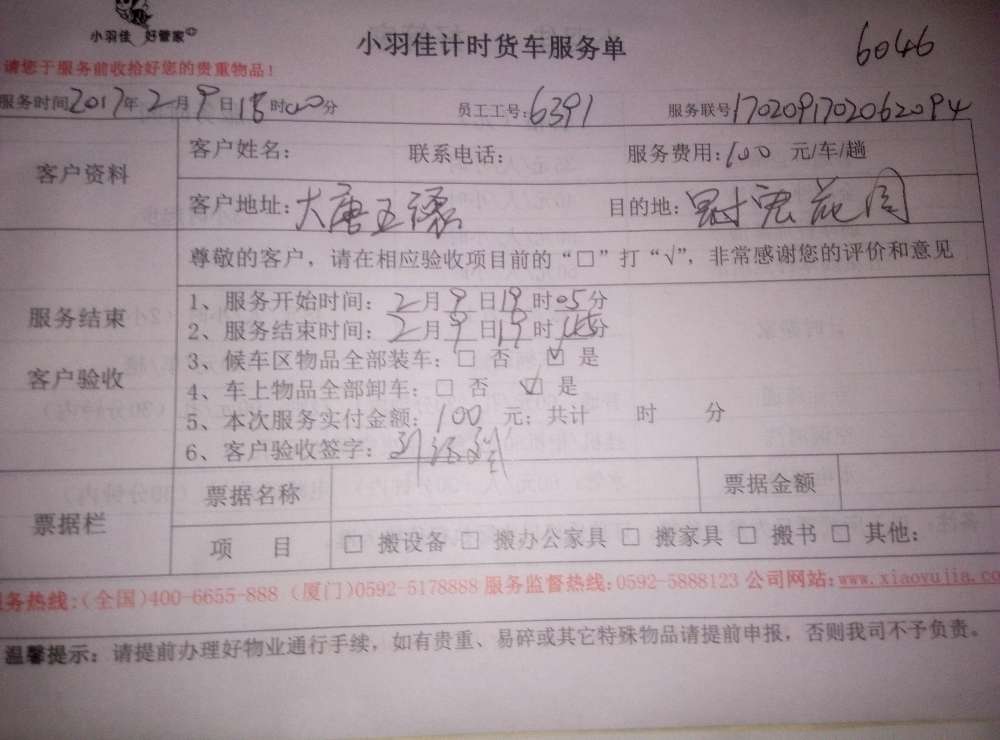 小羽佳 好管家
小羽佳计时货车服务单
6046
请您于服务前收拾好您的贵重物品！
服务时间2017年2月9日18时00分 员工工号:6391 服务联号1702091702062094
客户资料
客户姓名： 联系电话： 服务费用:100 元/车/趟
客户地址:大唐五 目的地: 宏花园
尊敬的客户，请在相应验收项目前的“□”打“√”，非常感谢您的评价和意见
服务结束
客户验收
1、服务开始时间：2月9日19时05分
2、服务结束时间：2月9日19时45分
3、候车区物品全部装车：□ 否 ☑ 是
4、车上物品全部卸车：□ 否 ☑ 是
5、本次服务实付金额：100 元；共计 时 分
6、客户验收签字：
票据栏
票据名称 票据金额
项 目 □ 搬设备 □ 搬办公家具 □ 搬家具 □ 搬书 □ 其他：
服务热线:(全国)400-6655-888 (厦门)0592-5178888 服务监督热线:0592-5888123 公司网站:www.xiaoyujia.co
温馨提示：请提前办理好物业通行手续，如有贵重、易碎或其它特殊物品请提前申报，否则我司不予负责。